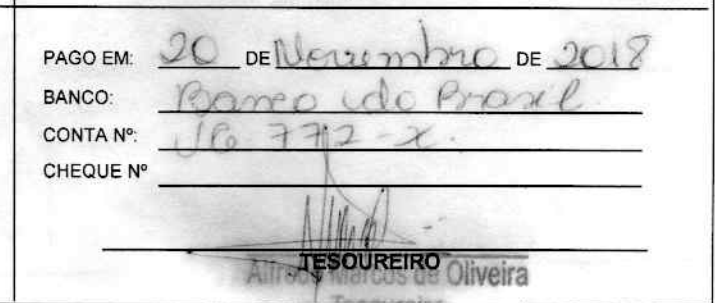 PAGO EM: 20 DE Novembro DE 2018
BANCO: Banco do Brasil
CONTA Nº: 16.772-X.
CHEQUE Nº
TESOUREIRO
Alfredo Marcos de Oliveira
Tesoureiro